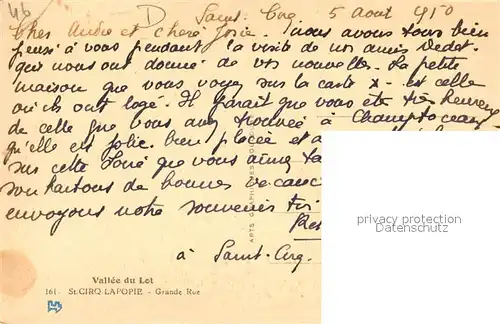 46 D Saint-Cirq 5 août 1950
Cher André et chère Josie. Nous avons tous bien
pensé à vous pendant la visite de nos amis Dedet.
qui nous ont donné de vos nouvelles. La petite
maison que vous voyez sur la carte x est celle
où ils ont logé. Il paraît que vous êtes très heureux
de celle que vous avez trouvée à Champtoceau
qu'elle est jolie. bien placée et a
sur cette Loire que vous aimez ta
souhaitons de bonnes vacanc
envoyons notre souvenir
à Saint-Cirq.
ARTS GRAPHIQUES
privacy protection
watermark
Vallée du Lot
161. St-CIRQ LAPOPIE - Grande Rue